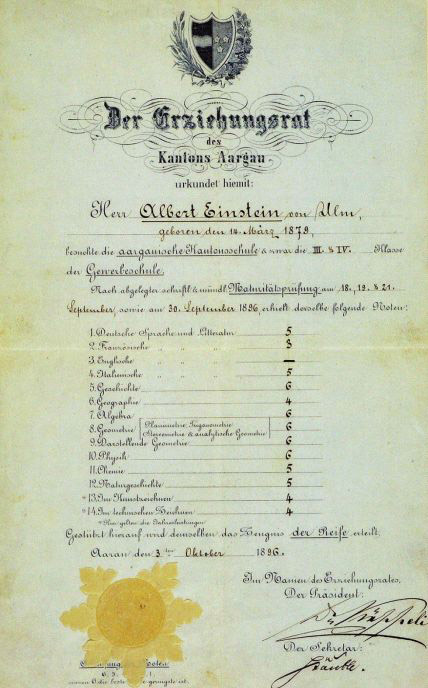 Der Erziehungsrat
des
Kantons Aargau
urkundet hiemit:
Herr Albert Einstein, von Ulm,
geboren den 14. März 1879,
besuchte die aargauische Kantonsschule & zwar die III. & IV. Klasse
der Gewerbeschule.
Nach abgelegter schriftl. & mündl. Maturitätsprüfung am 18., 19. & 21.
September, sowie am 30. September 1896, erhielt derselbe folgende Noten:
1. Deutsche Sprache und Litteratur 5
2. Französische „ „ „ 3
3. Englische „ „ „ —
4. Italienische „ „ „ 5
5. Geschichte 6
6. Geographie 4
7. Algebra 6
8. Geometrie [Planimetrie, Trigonometrie 6
Stereometrie & analytische Geometrie]
9. Darstellende Geometrie 6
10. Physik 6
11. Chemie 5
12. Naturgeschichte 5
*13. Im Kunstzeichnen 4
*14. Im technischen Zeichnen 4
*Hier gelten die Jahresleistungen
Gestützt hierauf wird demselben das Zeugnis der Reife erteilt.
Aarau den 3ten Oktober 1896.
Im Namen des Erziehungsrates,
Der Präsident:
Der Sekretär:
Noten
6. 5.
die beste geringste ist.